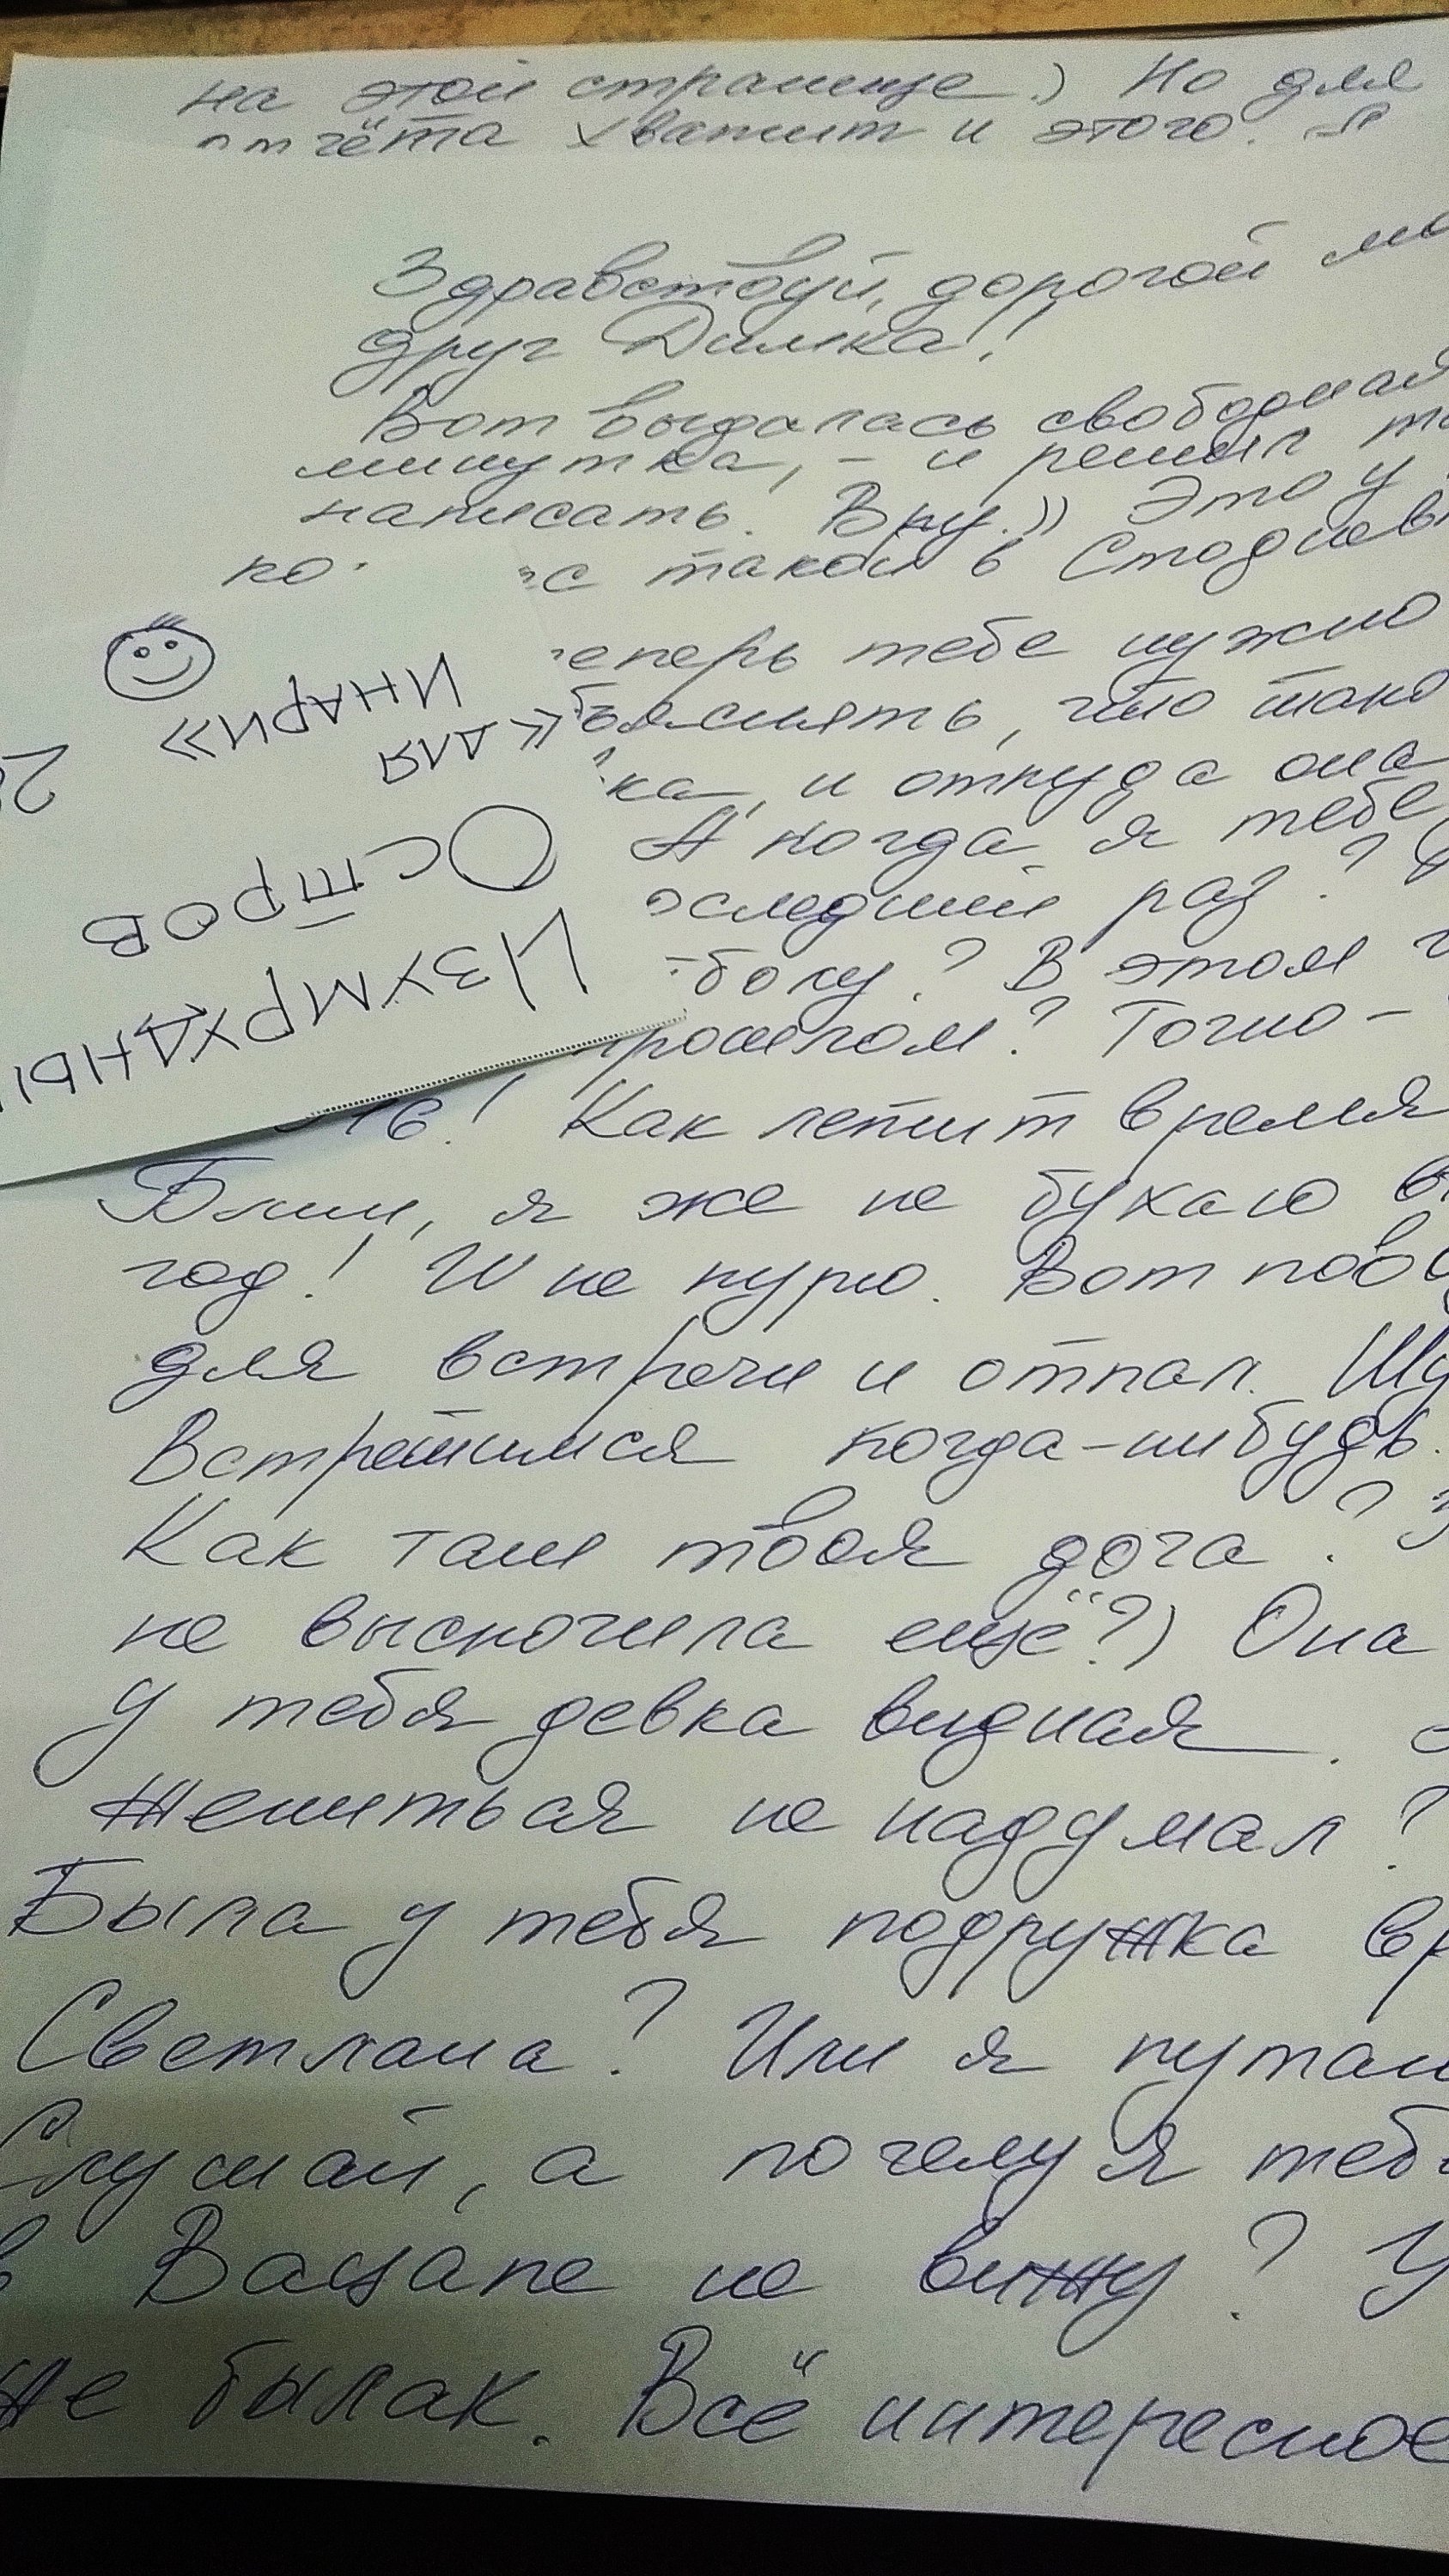 на этой странице.) Но для
отчёта хватит и этого.
Здравствуй, дорогой
друг Димка!
Вот выдалась свободная
минутка, – и решил
написать. Вру.)) Это у
такой в
теперь тебе нужно
объяснять, что тако
ка, и откуда она
А когда я тебе
последний раз?
В этом
прошлом? Точно –
16! Как летит время
Блин, я же не бухаю
год! И не курю. Вот
для встречи и отпал.
Встретимся когда-нибудь.
Как там твоя доча?
не выскочила ещё?) Она
у тебя девка видная.
Жениться не надумал?
Была у тебя подружка
Светлана? Или я путаю
Слушай, а почему я тебя
в Вацапе не вижу?
не былак. Всё интересное
ИЗУМРУДНЫ
ОСТРОВ
«ДЛЯ
ИНАРИ»